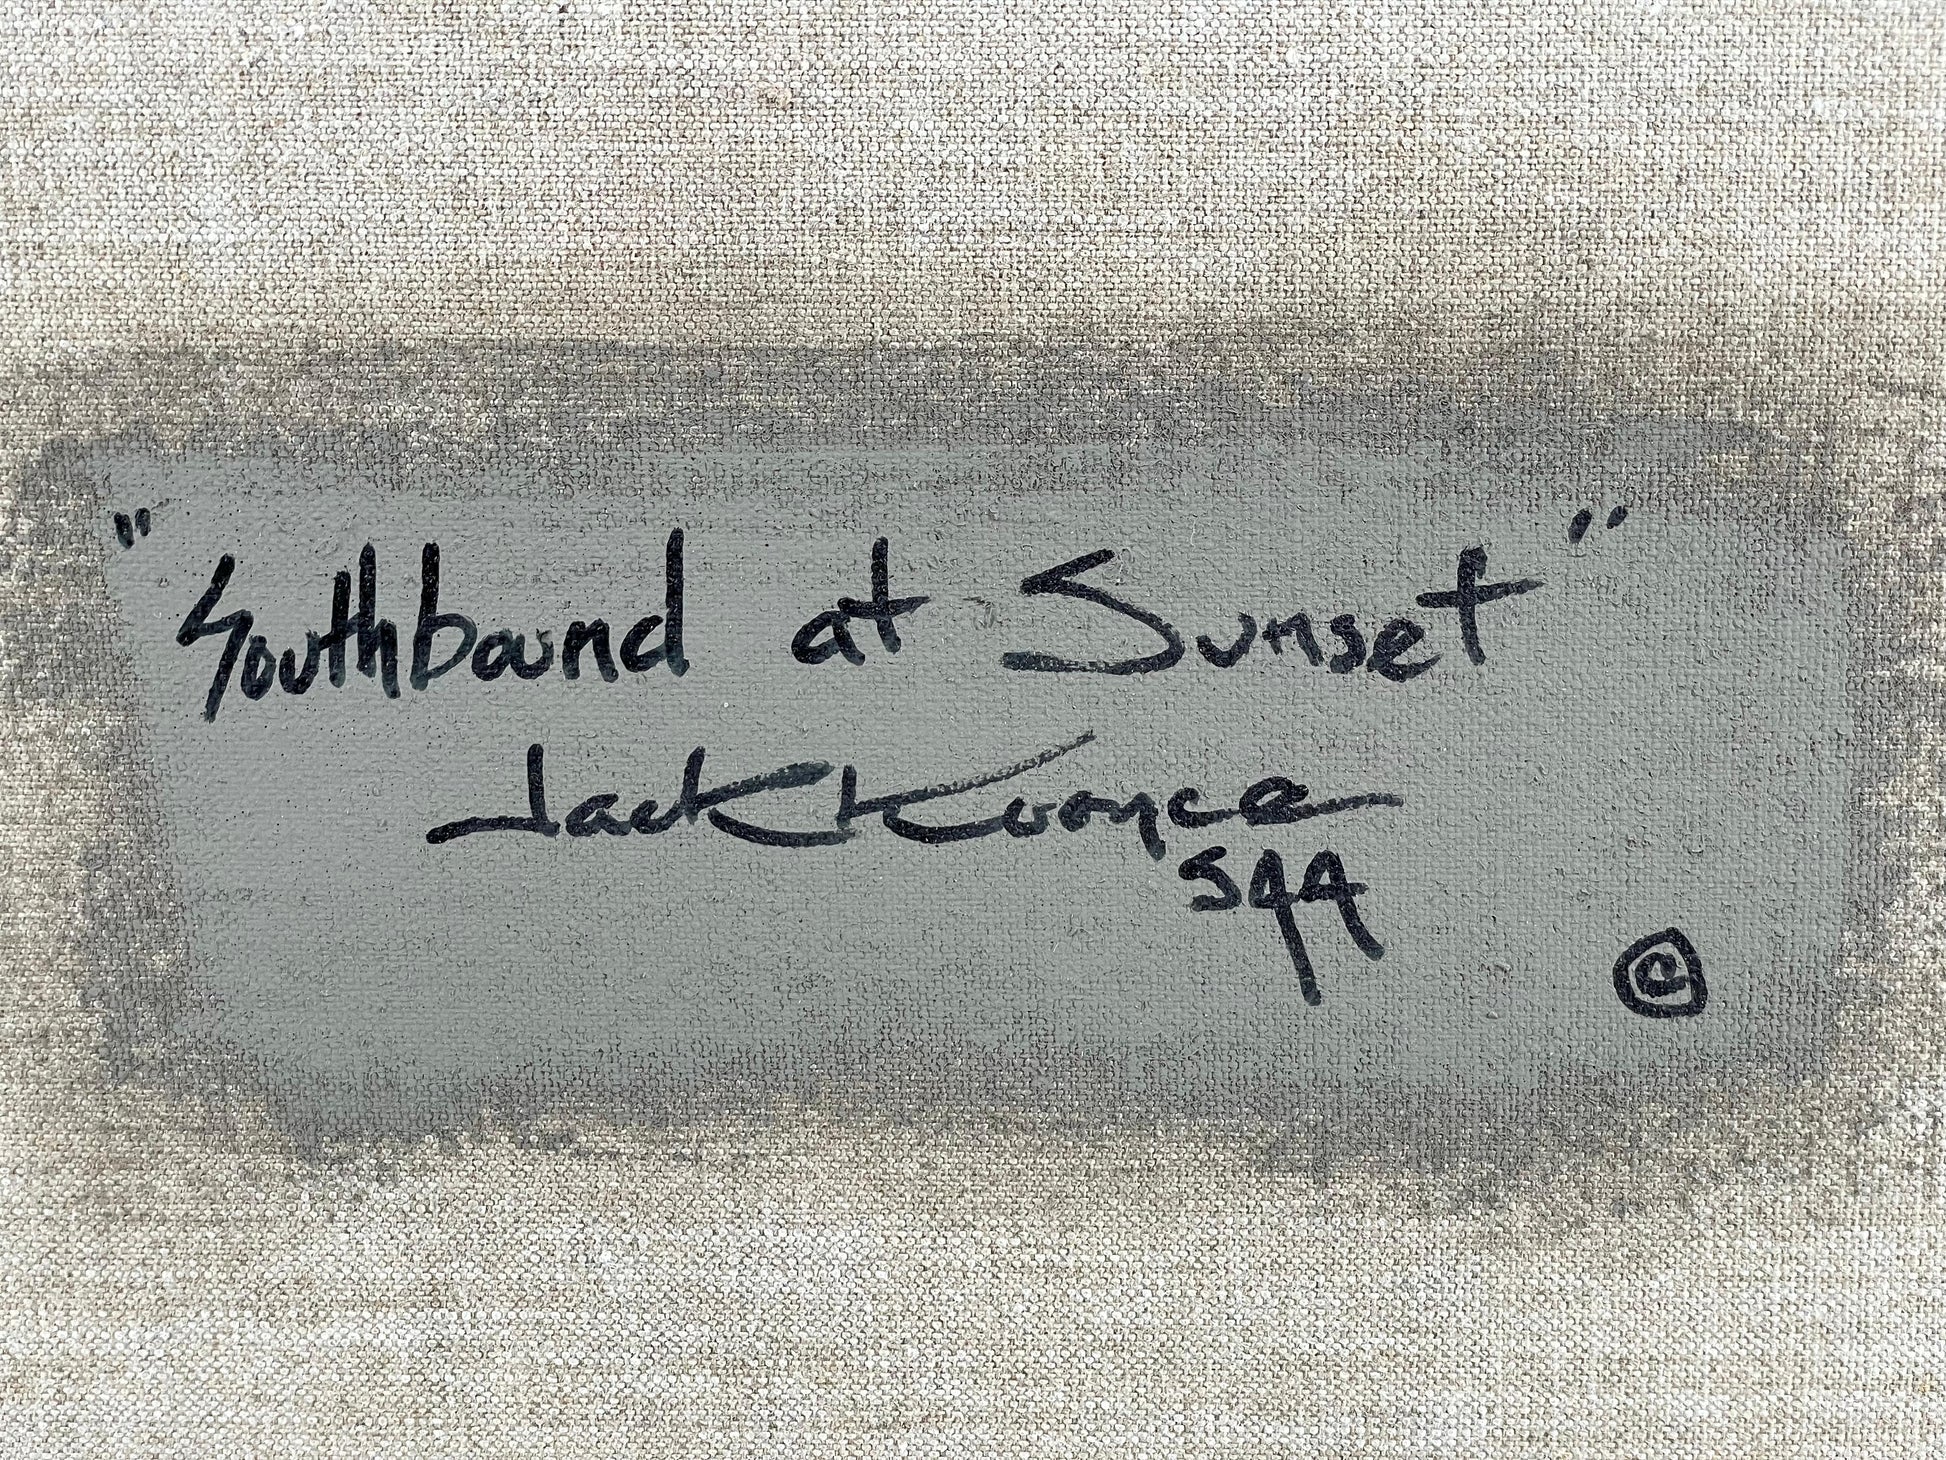 "Southbound at Sunset"
Jack Koonce
SAA
©